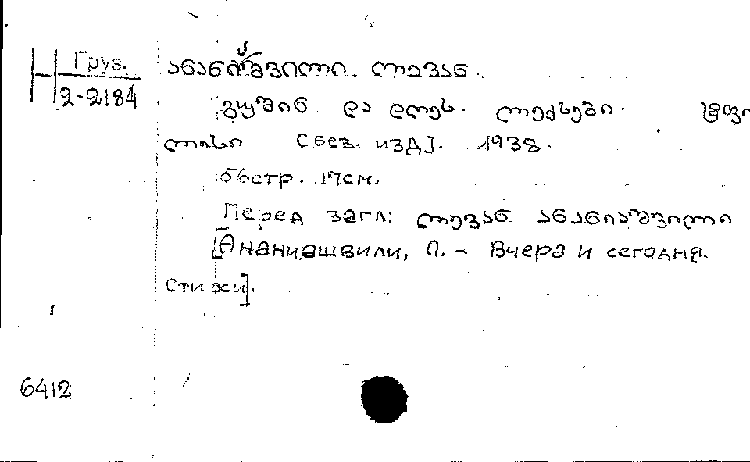 Н Груз.
2-2184
ანანიაშვილი ლევან.
გუშინ და დღეს. ლექსები. ტფი
ლისი [без изд]. 1938.
66стр. 17см.
Перед загл: ლევან ანანიაშვილი
[Ананиашвили, Л. - Вчера и сегодня.
Стихи].
6412